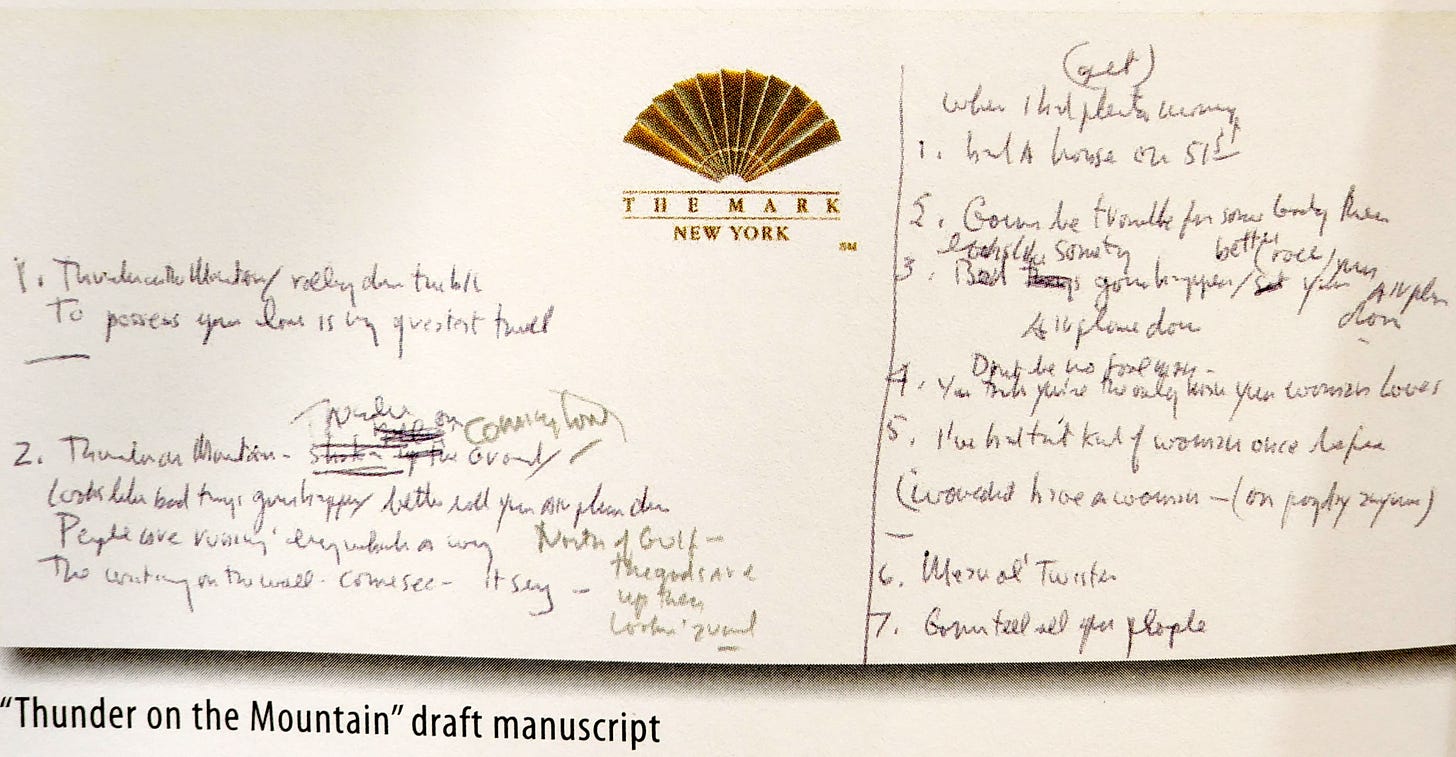 THE MARK
NEW YORK
SM
1. Thunder on the Mountain / rolling down the hill
To possess your love is my greatest thrill
2. Thunder on Mountain - the Ground /
Looks like bad things gonna happen / better roll your airplane down
People are running' everywhere a way
The writing on the wall - come see - it say -
North of Gulf -
the gods are
up there
lookin' round
(get)
when I had plenty money
1. had A house on 51st
2. Gonna be trouble for some body then
looks like something better (roll / your Airplane down
3. Bad things gonna happen / your
Airplane down
Don't be no fool
4. You think you're the only your woman Loves
5. I've had that kind of woman once before
(would have a woman - (on payday
6. Mean ol' Twister
7. Gonna tell all you people
"Thunder on the Mountain" draft manuscript